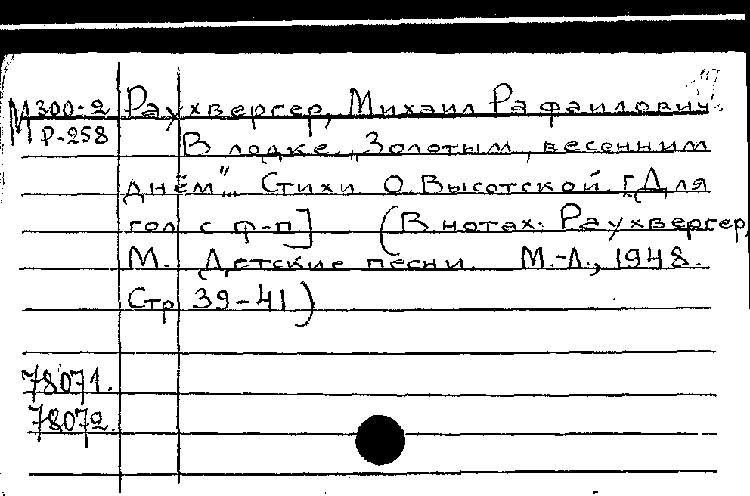 М 300-2 Раухвергер, Михаил Рафаилович.
Р-258 В лодке „Золотым, весенним
днём"... Стихи О. Высотской. [Для
гол. с ф-п] (В нотах: Раухвергер,
М. Детские песни. М.-Л., 1948.
Стр. 39-41)
78071.
78072.